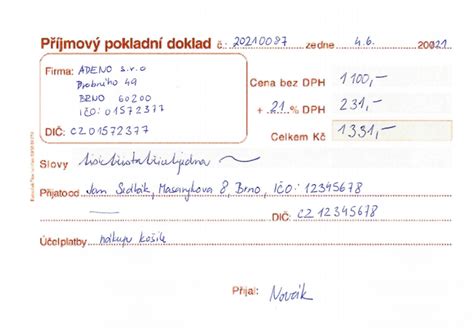 Příjmový pokladní doklad č.: 20210087 ze dne 4.6. 20021
Firma: ADENO s.r.o
Drobného 49
BRNO 60200
IČO: 01572377
DIČ: CZ01572377
Cena bez DPH 1100,–
+ 21 % DPH 231,–
Celkem Kč 1331,–
Slovy tisíctřistatřicetjedna
Přijato od Jan Sedlák, Masarykova 8, Brno, IČO: 12345678
— DIČ: CZ 12345678
Účel platby nákup košile
Přijal: Novák